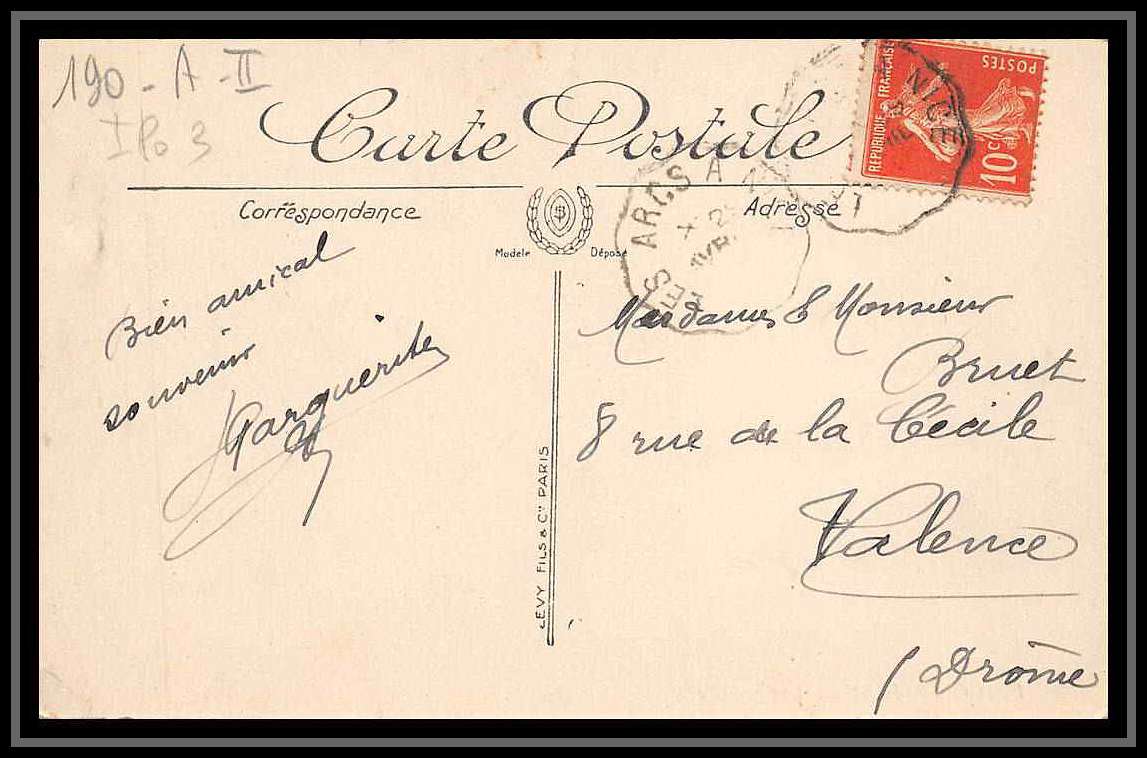 190 - A - II
I Po 3
Carte Postale
POSTES
REPUBLIQUE FRANÇAISE
10 c
NICE
LES ARCS A
Correspondance
Adresse
Modèle Déposé
Bien amical
souvenir
Marguerite
LEVY FILS & Cie PARIS
Mesdames & Monsieur
Bruet
8 rue de la Cécile
Valence
(Drôme